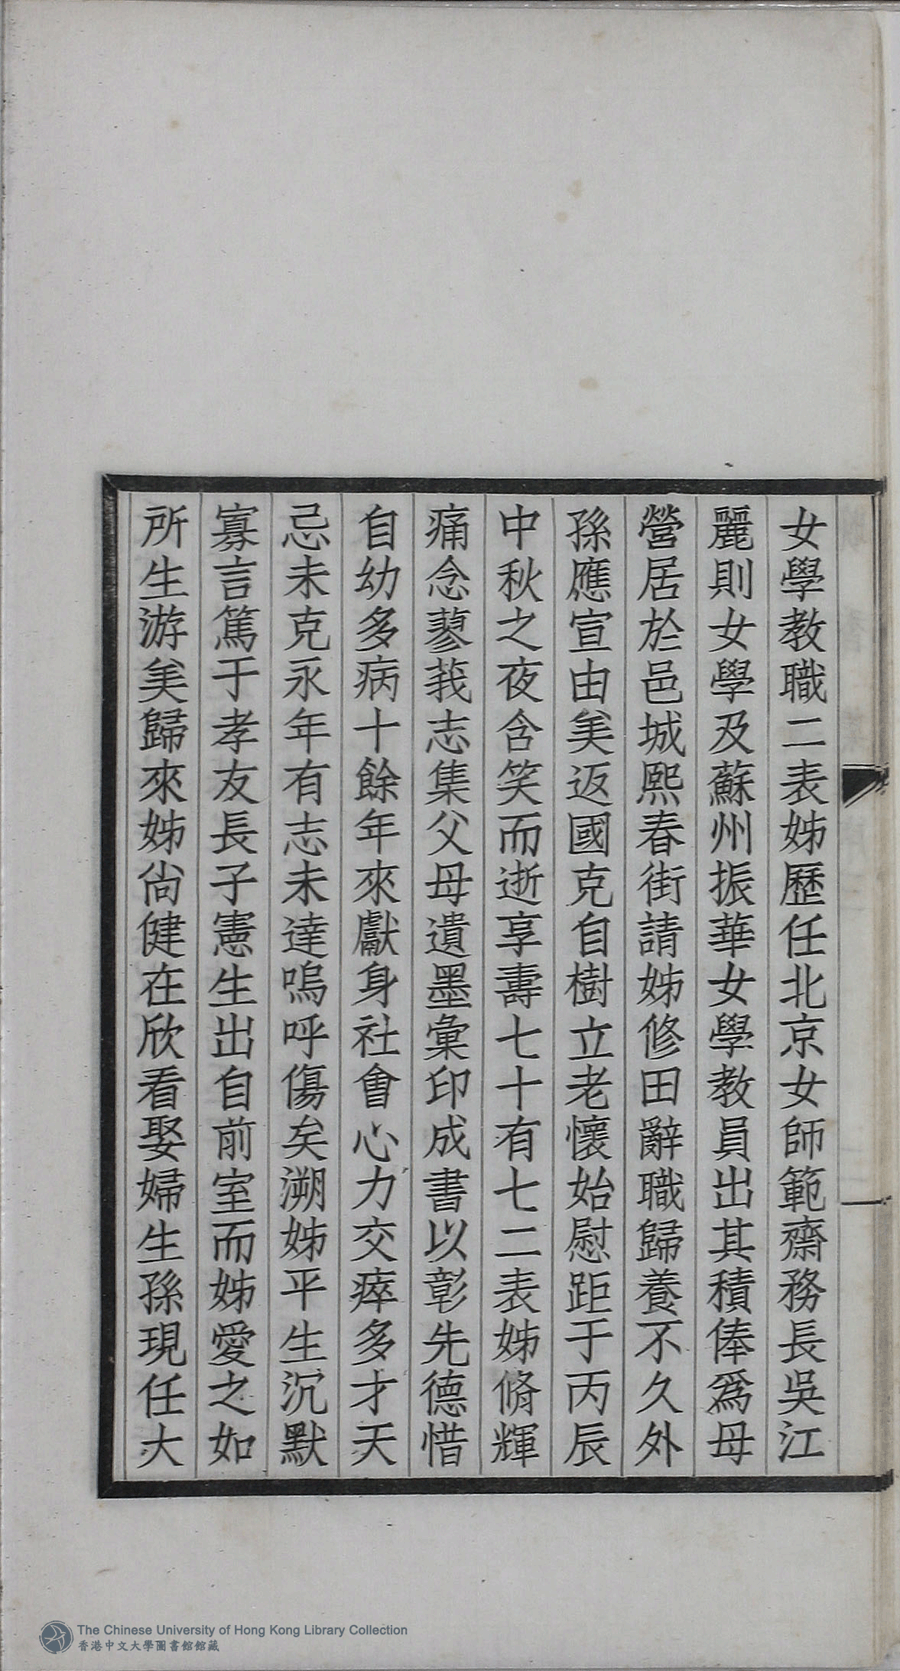 女學教職二表姊歷任北京女師範齋務長吳江
麗則女學及蘇州振華女學教員出其積俸爲母
營居於邑城熙春街請姊修田辭職歸養不久外
孫應宣由美返國克自樹立老懷始慰距于丙辰
中秋之夜含笑而逝享壽七十有七二表姊脩輝
痛念蓼莪志集父母遺墨彙印成書以彰先德惜
自幼多病十餘年來獻身社會心力交瘁多才天
忌未克永年有志未達嗚呼傷矣溯姊平生沉默
寡言篤于孝友長子憲生出自前室而姊愛之如
所生游美歸來姊尙健在欣看娶婦生孫現任大
The Chinese University of Hong Kong Library Collection
香港中文大學圖書館館藏